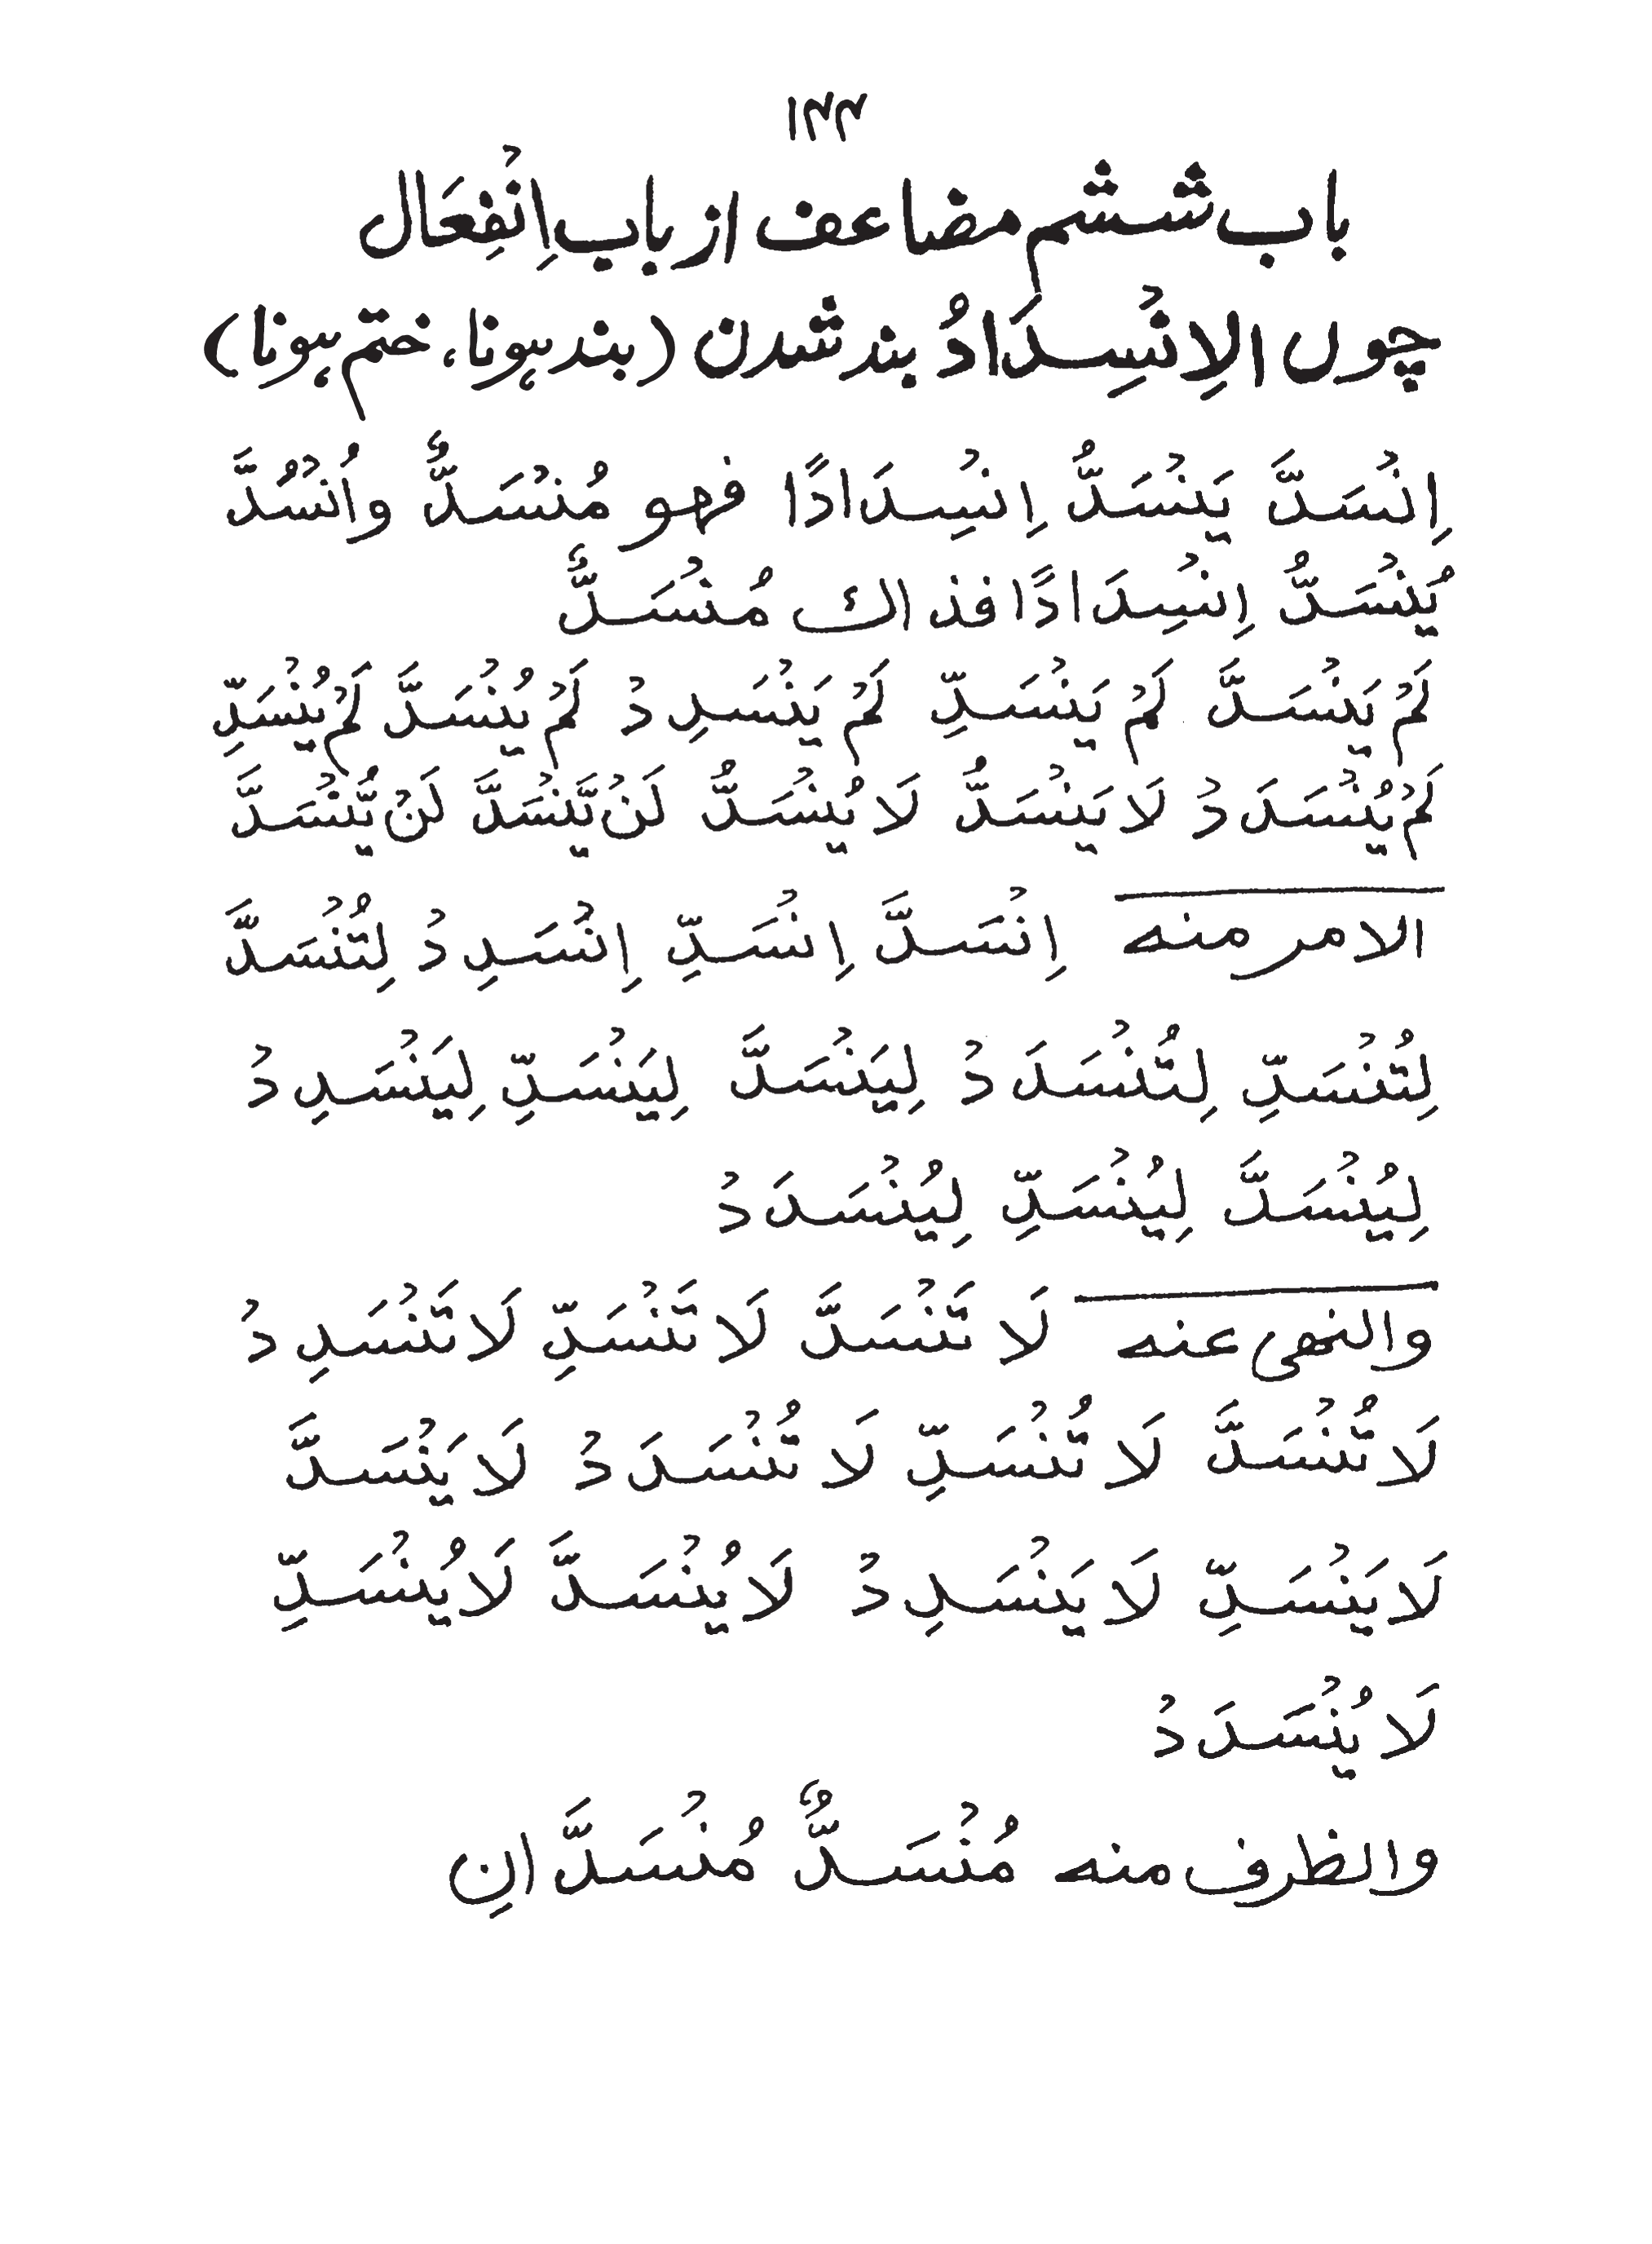 ۱۴۴
باب ششم مضاعف از باب اِنْفِعَال
چوں الاِنْسِدَادُ بند شدن (بند ہونا، ختم ہونا)
اِنْسَدَّ يَنْسَدُّ اِنْسِدَادًا فهو مُنْسَدٌّ واُنْسُدَّ
يُنْسَدُّ اِنْسِدَادًا فذاك مُنْسَدٌّ
لَمْ يَنْسَدَّ لَمْ يَنْسَدِّ لَمْ يَنْسَدِدْ لَمْ يُنْسَدَّ لَمْ يُنْسَدِّ
لَمْ يُنْسَدَدْ لَا يَنْسَدُّ لَا يُنْسَدُّ لَنْ يَّنْسَدَّ لَنْ يُّنْسَدَّ
الامر منه اِنْسَدَّ اِنْسَدِّ اِنْسَدِدْ لِتُنْسَدَّ
لِتُنْسَدِّ لِتُنْسَدَدْ لِيَنْسَدَّ لِيَنْسَدِّ لِيَنْسَدِدْ
لِيُنْسَدَّ لِيُنْسَدِّ لِيُنْسَدَدْ
والنهى عنه لَا تَنْسَدَّ لَا تَنْسَدِّ لَا تَنْسَدِدْ
لَا تُنْسَدَّ لَا تُنْسَدِّ لَا تُنْسَدَدْ لَا يَنْسَدَّ
لَا يَنْسَدِّ لَا يَنْسَدِدْ لَا يُنْسَدَّ لَا يُنْسَدِّ
لَا يُنْسَدَدْ
والظرف منه مُنْسَدٌّ مُنْسَدَّانِ